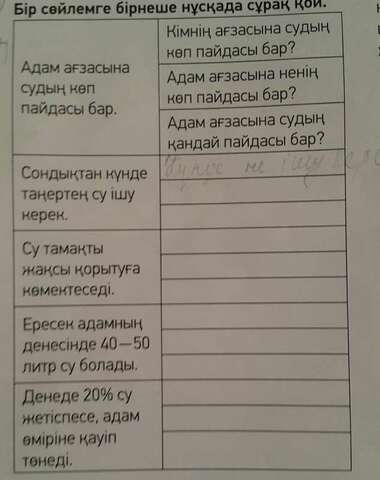 Бір сөйлемге бірнеше нұсқада сұрақ қой.
Адам ағзасына
судың көп
пайдасы бар.
Кімнің ағзасына судың
көп пайдасы бар?
Адам ағзасына ненің
көп пайдасы бар?
Адам ағзасына судың
қандай пайдасы бар?
Сондықтан күнде
таңертең су ішу
керек.
не ішу
Су тамақты
жақсы қорытуға
көмектеседі.
Ересек адамның
денесінде 40—50
литр су болады.
Денеде 20% су
жетіспесе, адам
өміріне қауіп
төнеді.